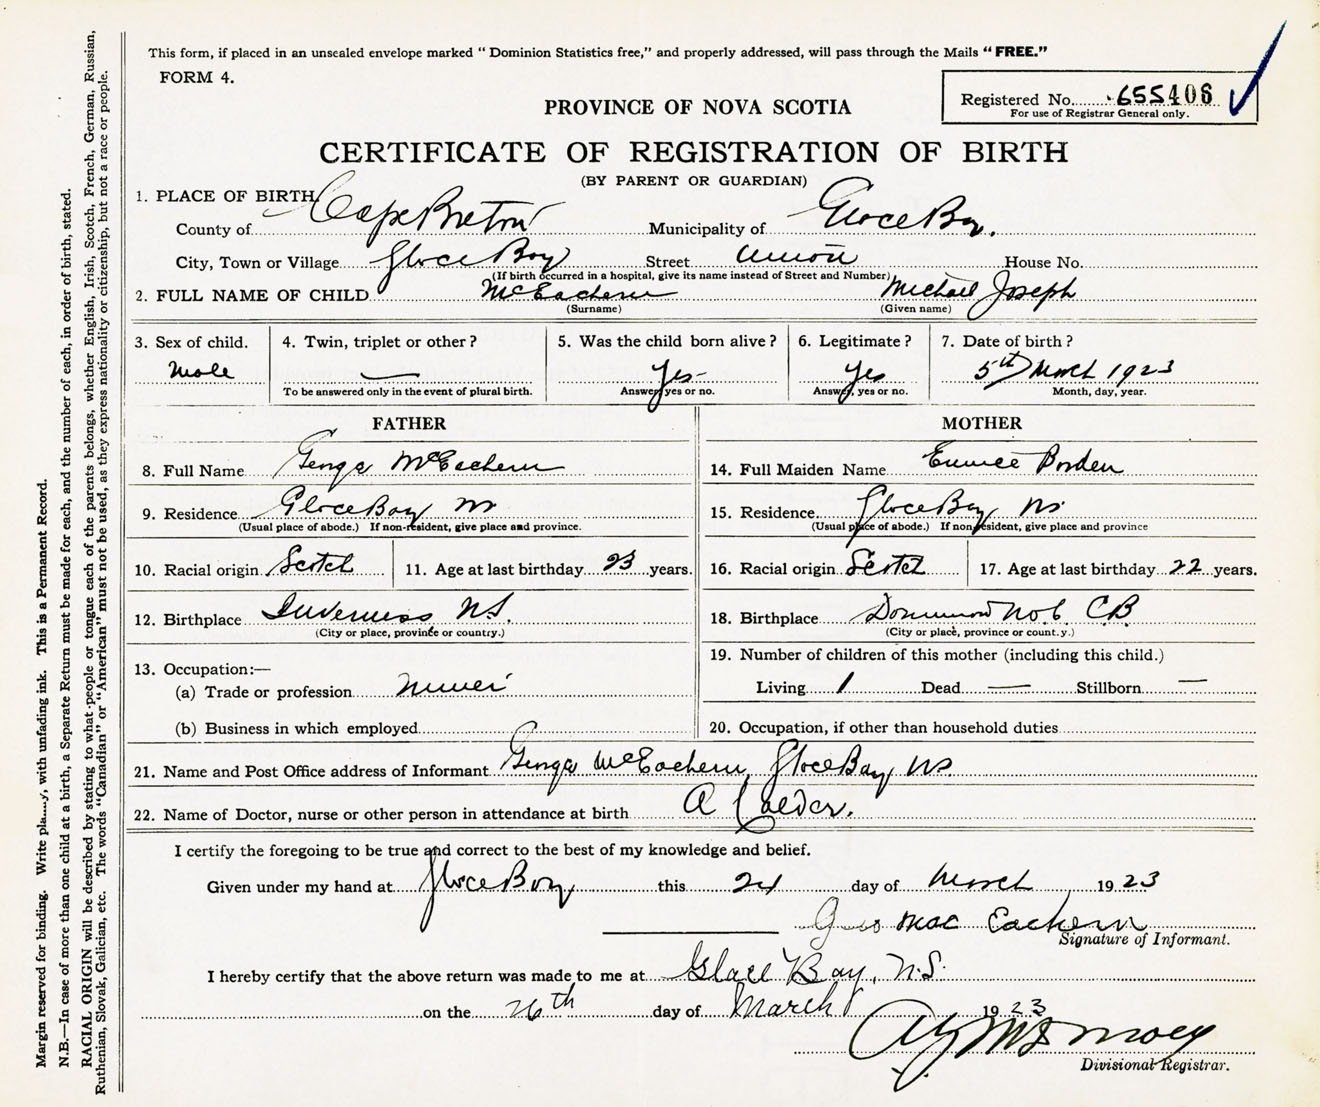 This form, if placed in an unsealed envelope marked " Dominion Statistics free," and properly addressed, will pass through the Mails " FREE."
FORM 4.
Registered No. 655406
For use of Registrar General only.
PROVINCE OF NOVA SCOTIA
CERTIFICATE OF REGISTRATION OF BIRTH
(BY PARENT OR GUARDIAN)
1. PLACE OF BIRTH
County of Cape Breton Municipality of Glace Bay.
City, Town or Village Glace Bay Street Union House No.
(If birth occurred in a hospital, give its name instead of Street and Number)
2. FULL NAME OF CHILD McEachern Michael Joseph
(Surname) (Given name)
3. Sex of child. 4. Twin, triplet or other? 5. Was the child born alive? 6. Legitimate? 7. Date of birth?
Male — Yes- Yes 5th March 1923
To be answered only in the event of plural birth. Answer yes or no. Answer, yes or no. Month, day, year.
FATHER MOTHER
8. Full Name George McEachern 14. Full Maiden Name Eunice Borden
9. Residence Glace Bay NS 15. Residence. Glace Bay NS
(Usual place of abode.) If non-resident, give place and province. (Usual place of abode.) If non resident, give place and province
10. Racial origin Scotch 11. Age at last birthday 23 years. 16. Racial origin Scotch 17. Age at last birthday 22 years.
12. Birthplace Inverness N.S. 18. Birthplace Dominion No. 6 CB
(City or place, province or country.) (City or place, province or count.y.)
19. Number of children of this mother (including this child.)
13. Occupation:—
(a) Trade or profession Miner Living 1 Dead — Stillborn —
(b) Business in which employed 20. Occupation, if other than household duties
21. Name and Post Office address of Informant George McEachern, Glace Bay NS
22. Name of Doctor, nurse or other person in attendance at birth A Calder.
I certify the foregoing to be true and correct to the best of my knowledge and belief.
Given under my hand at Glace Bay this 24 day of March 1923
Geo MacEachern
Signature of Informant.
I hereby certify that the above return was made to me at Glace Bay, N.S.
on the 26th day of March 1923
Divisional Registrar.
Margin reserved for binding. Write pla.....y, with unfading ink. This is a Permanent Record.
N.B.—In case of more than one child at a birth, a Separate Return must be made for each, and the number of each, in order of birth, stated.
RACIAL ORIGIN will be described by stating to what people or tongue each of the parents belongs, whether English, Irish, Scotch, French, German, Russian,
Ruthenian, Slovak, Galician, etc. The words "Canadian" or "American" must not be used, as they express nationality or citizenship, but not a race or people.